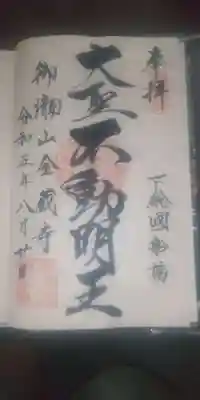 奉拝
下総國船橋
大聖不動明王
御瀧山金蔵寺
令和五年八月廿日